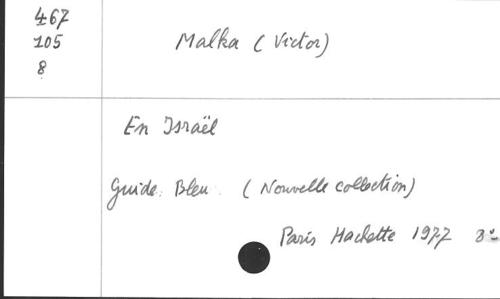 467
105
8
Malka (Victor)
En Israël
Guide Bleu (Nouvelle collection)
Paris Hachette 1977 8º